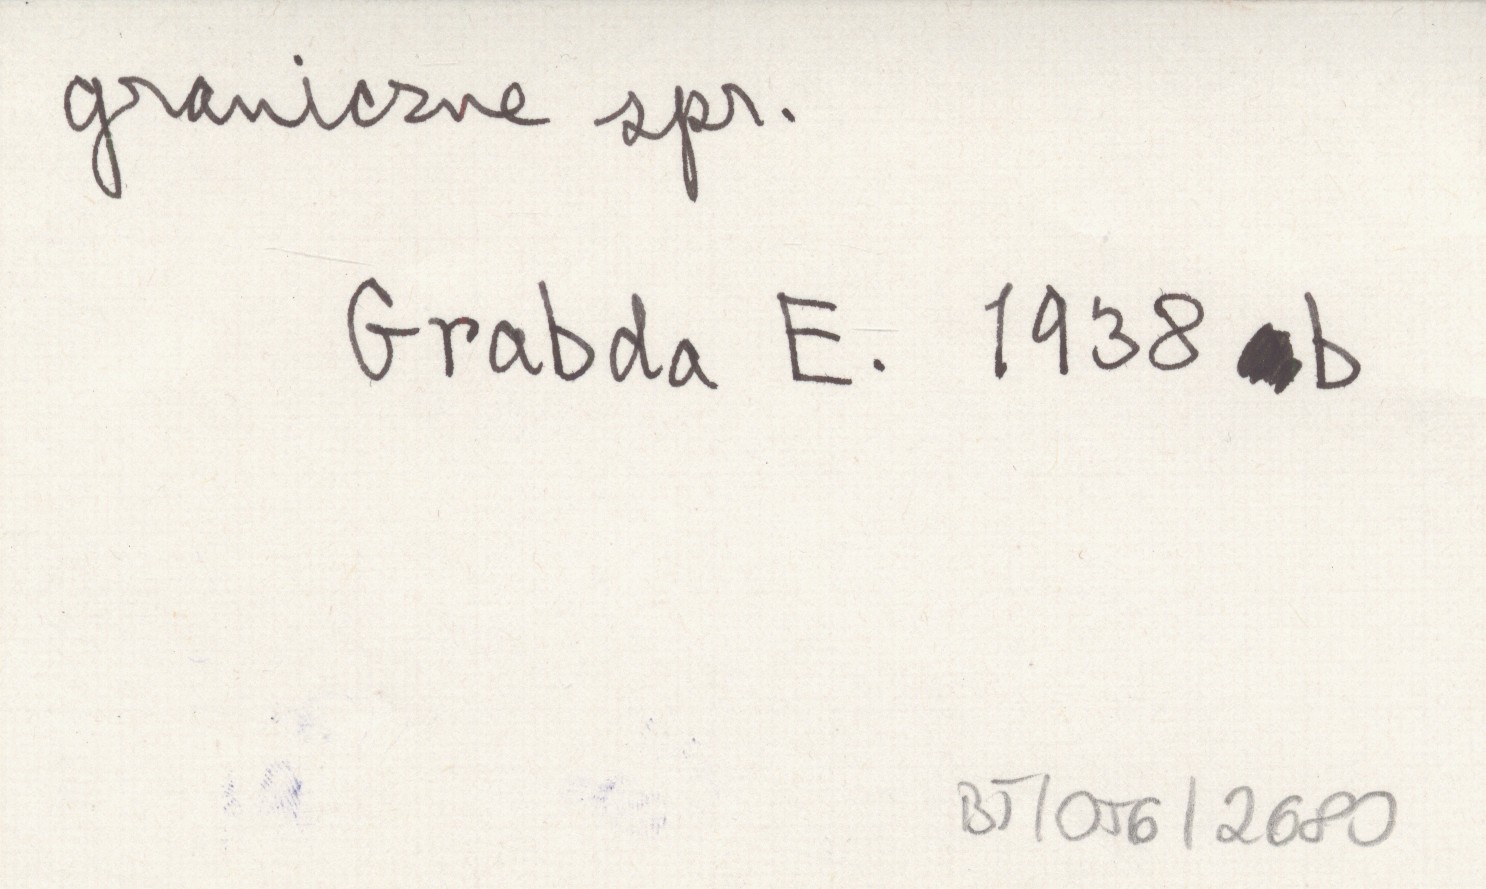 graniczne spr.
Grabda E. 1938 b
BJ/056/2680